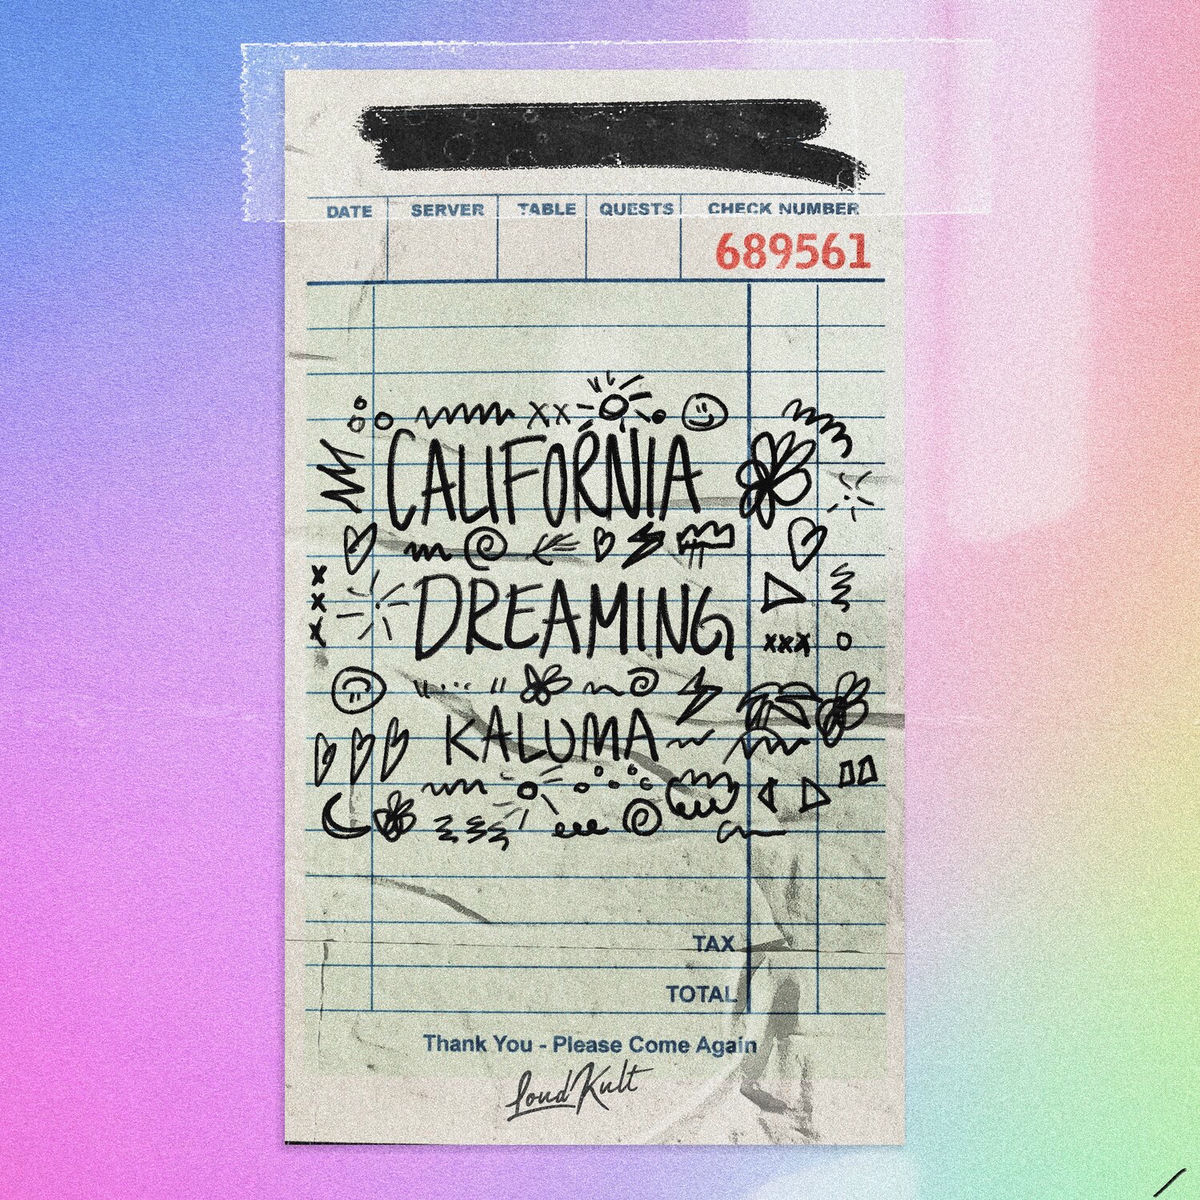 DATE SERVER TABLE QUESTS CHECK NUMBER
689561
XX
CALIFORNIA
DREAMING
xxx
KALUMA
TAX
TOTAL
Thank You - Please Come Again
LoudKult